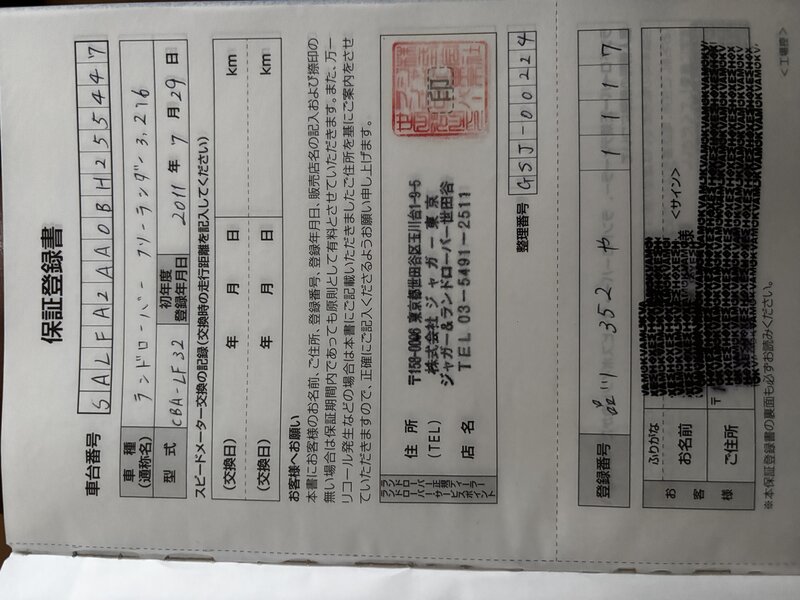 保証登録書
車台番号 SALFA2AA0BH255447
車種(通称名) ランドローバー フリーランダー3.2 i6
型式 CBA-LF32 初年度登録年月日 2011年7月29日
スピードメーター交換の記録(交換時の走行距離を記入してください)
(交換日) 年 月 日 km
(交換日) 年 月 日 km
お客様へお願い
本書にお客様のお名前、ご住所、登録番号、登録年月日、販売店名の記入および捺印の
無い場合は保証期間内であっても原則として有料とさせていただきます。また、万一
リコール発生などの場合は本書にご記載いただきましたご住所を基にご案内をさせ
ていただきますので、正確にご記入くださるようお願い申し上げます。
住所
(TEL)
店名
〒158-0096 東京都世田谷区玉川台1-9-5
株式会社 ジャガー東京
ジャガー&ランドローバー世田谷
TEL 03-5491-2511
印
整理番号 GSJ-00224
登録番号 品川 352 や 1117
お客様
ふりがな
お名前 様 <サイン>
ご住所 〒
※本保証登録書の裏面も必ずお読みください。
<工場原>